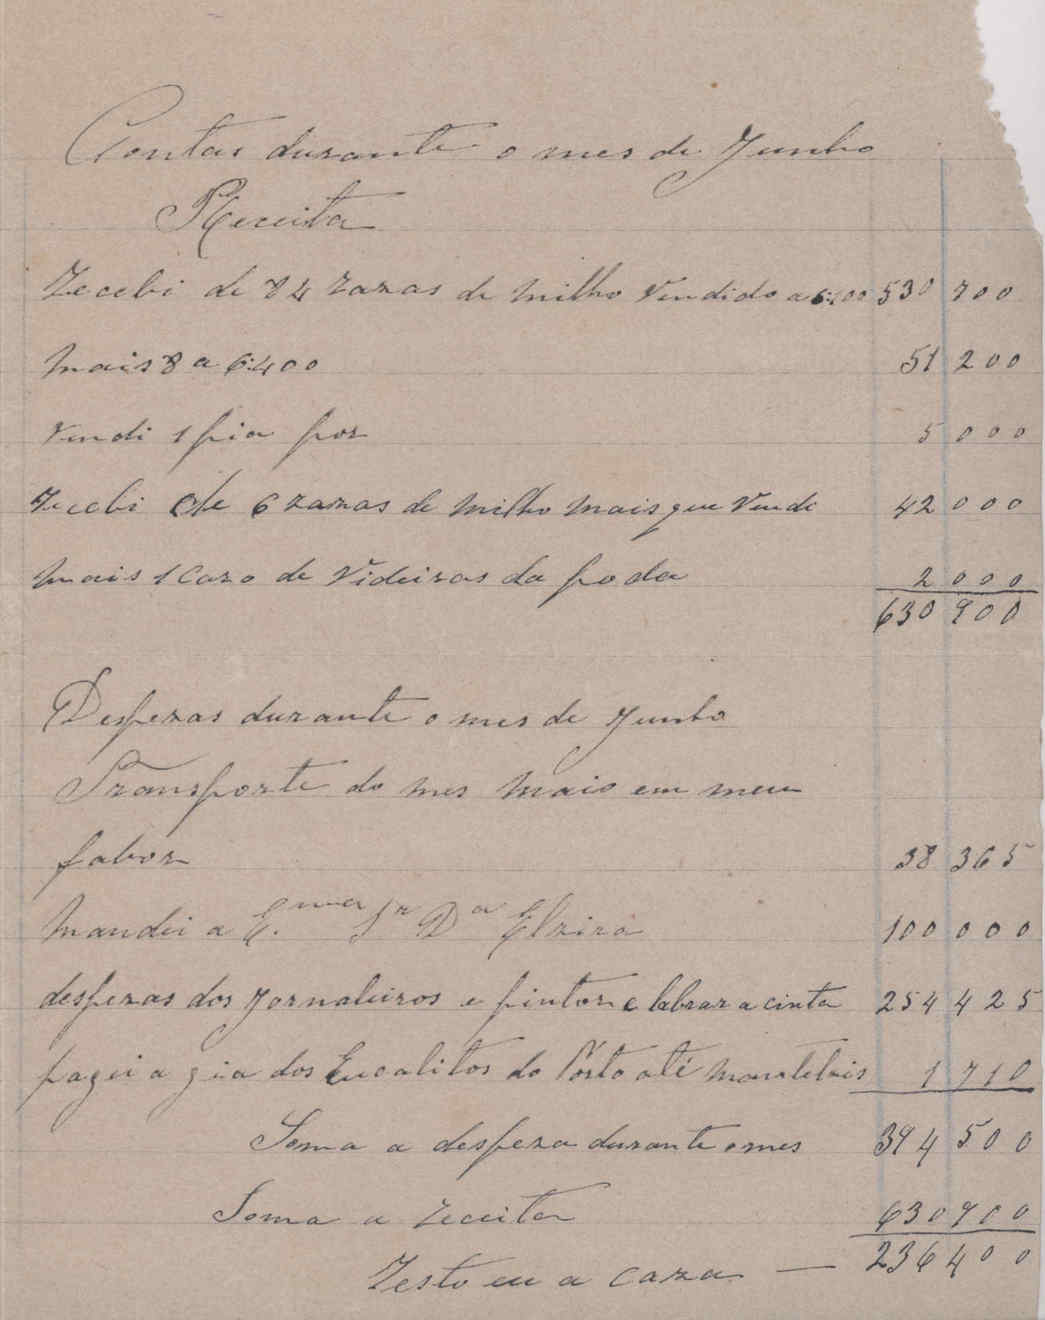 Contas durante o mes de Junho
Receita
Recebi de 84 razas de milho Vendido a 530 700
mais 8 a 6:400 51 200
Vendi 1 pia por 5 000
Recebi de 6 razas de milho mais que Vende 42 000
mais 1 Caro de Videiras da poda 2 000
630 900
Despezas durante o mes de Junho
Transporte do mes maio em meu
fabor 38 365
Mandei a E.ma Sr D.a Elzira 100 000
despezas dos Jornaleiros e pintor e labrar a cinta 254 425
paguei a gia dos Eucalitos do Porto até 1 710
Soma a despeza durante o mes 394 500
Soma a receita 630 900
Resto eu a caza — 236 400